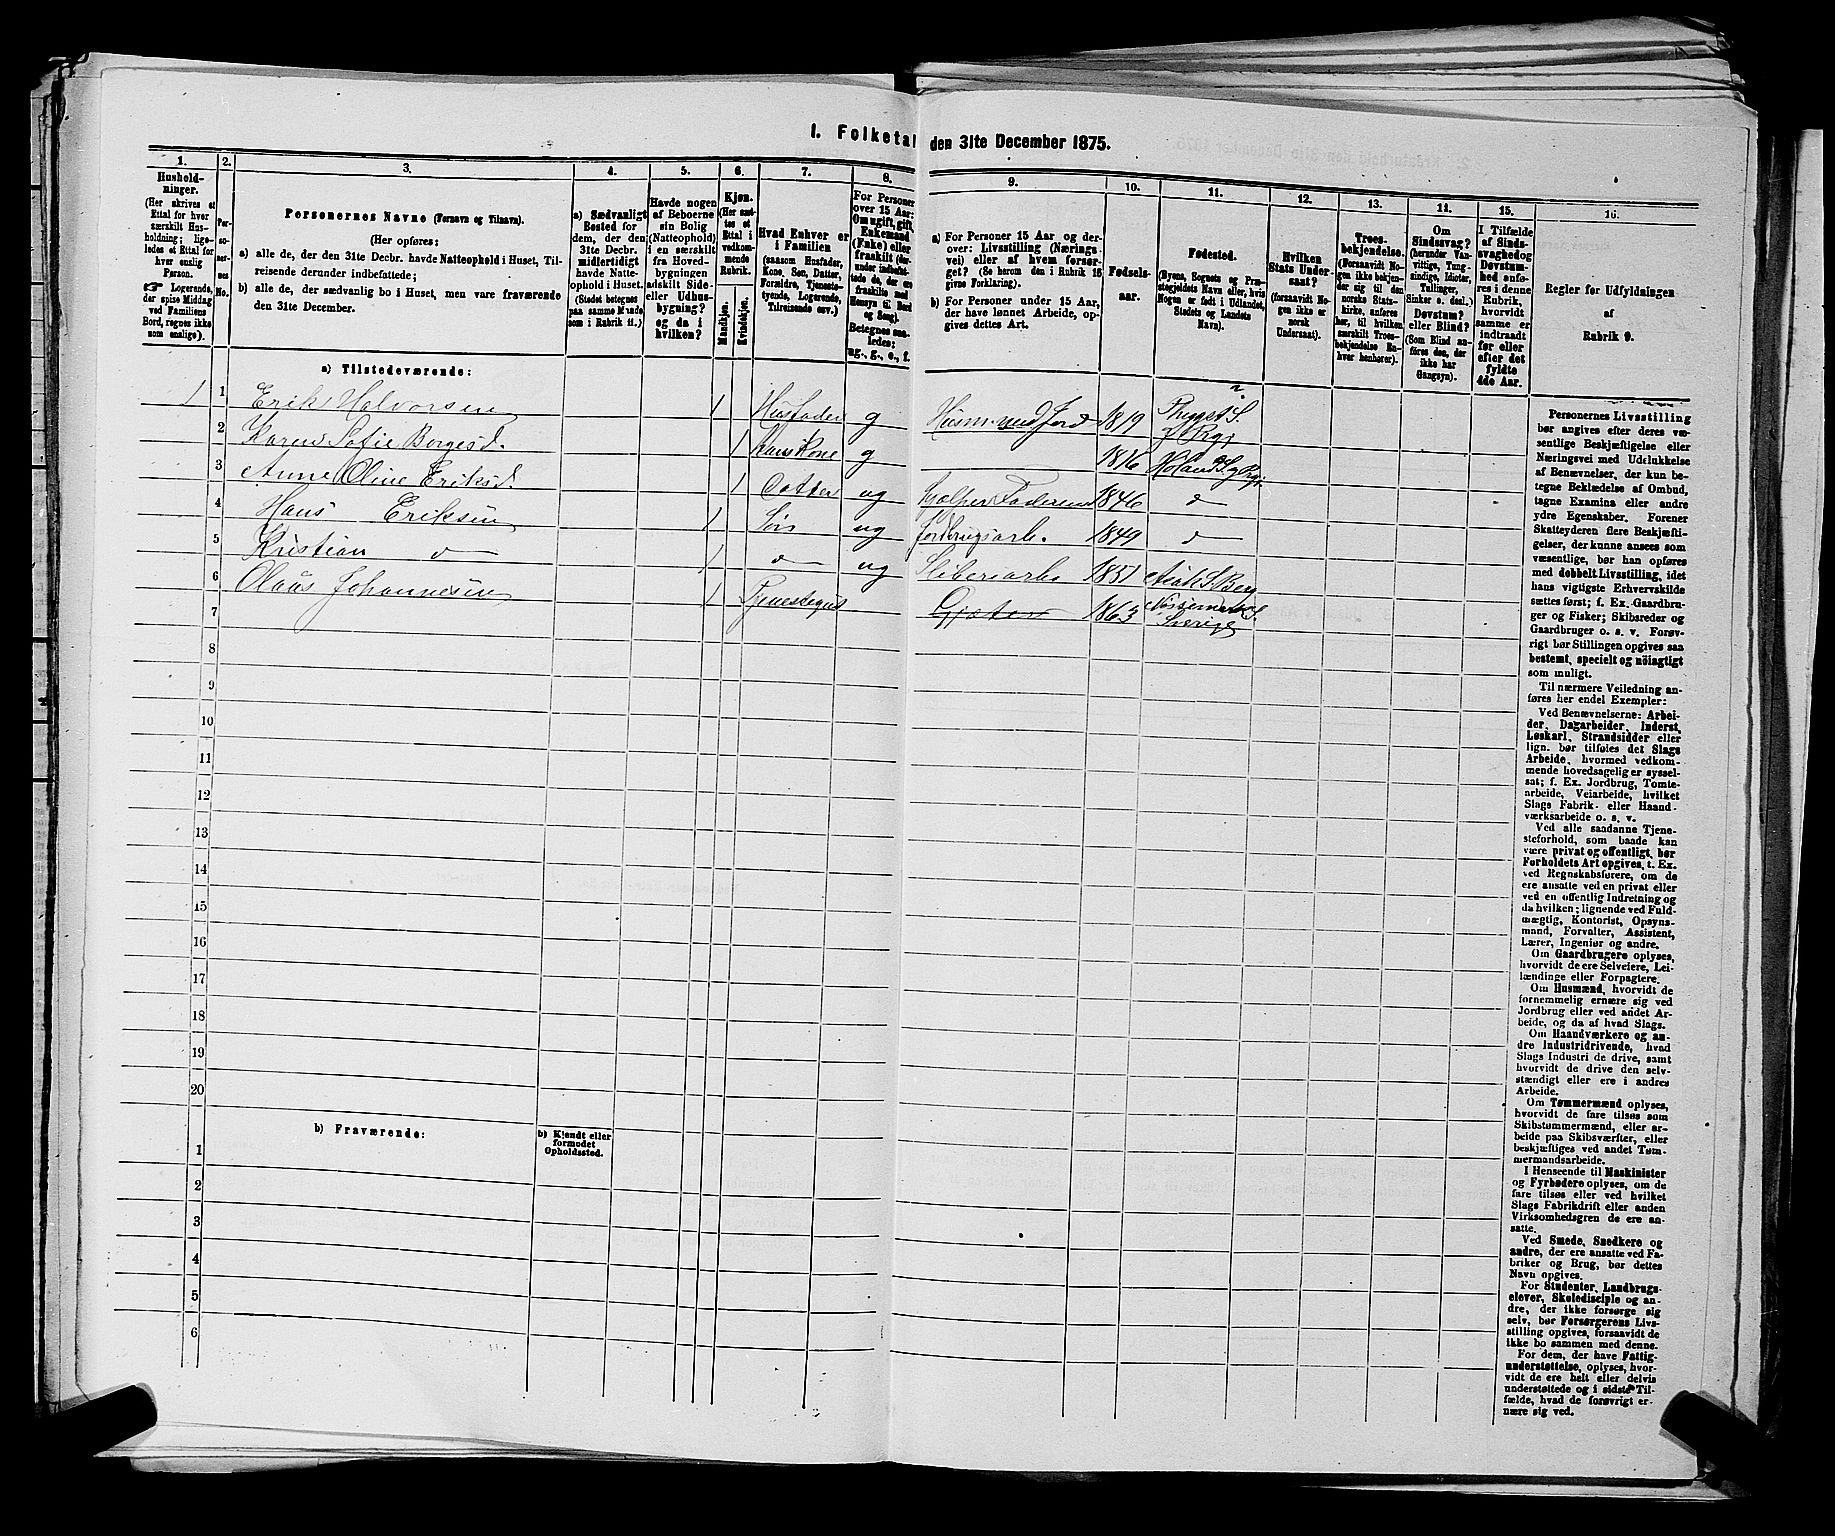 I. Folketal den 31te December 1875.
1. 2. 3. 4. 5. 6. 7. 8. 9. 10. 11. 12. 13. 14. 15. 16.
Hushold-
ninger.
(Her skrives et
Ettal for hver
særskilt Hus-
holdning; lige-
ledes et Ettal for
hver enslig
Person.
Logerende,
der spise Middag
ved Familiens
Bord, regnes ikke
som enslige).
Per-
so-
ner-
nes
No.
Personernes Navne (Fornavn og Tilnavn).
(Her opføres:
a) alle de, der den 31te Decbr. havde Natteophold i Huset, Til-
reisende derunder indbefattede;
b) alle de, der sædvanlig bo i Huset, men vare fraværende
den 31te December.
a) Sædvanligt
Bosted for
dem, der den
31te Decbr.
midlertidigt
havde Natte-
ophold i Huset.
(Stedet betegnes
paa samme Maade
som i Rubrik 11.)
Havde nogen
af Beboerne
sin Bolig
(Natteophold)
i en særskilt
fra Hoved-
bygningen
adskilt Side-
eller Udhus-
bygning?
og da i
hvilken?
Kjøn.
(Her sæt-
tes et
Ettal i
vedkom-
mende
Rubrik.
Mandkjøn.
Kvindekjøn.
Hvad Enhver er
i Familien
(saasom Husfader,
Kone, Søn, Datter,
Forældre, Tjeneste-
tyende, Logerende,
Tilreisende osv.)
For Personer
over 15 Aar:
Om ugift, gift,
Enkemand
(Enke) eller
fraskilt (der-
under indbefat-
tede de, der ere
fraskilte med
Hensyn til Bord
og Seng).
Betegnes saa-
ledes:
ug., g., e., f.
a) For Personer 15 Aar og der-
over: Livsstilling (Nærings-
vei) eller af hvem forsør-
get? (Se herom den i Rubrik 16
givne Forklaring).
b) For Personer under 15 Aar,
der have lønnet Arbeide, op-
gives dettes Art.
Fødsels-
aar.
Fødested.
(Byens, Sognets og Præ-
stegjeldets Navn eller, hvis
Nogen er født i Udlandet,
Stedets og Landets
Navn).
Hvilken
Stats Under-
saat?
(forsaavidt No-
gen ikke er
norsk
Undersaat).
Troes-
bekjendelse.
(Forsaavidt No-
gen ikke bekjen-
der sig til den
norske Stats-
kirke, anføres
her, til hvilken
særskilt Troes-
bekjendelse En-
hver henhører).
Om
Sindssvag?
(herunder Van-
vittige, Tung-
sindige, Idioter,
Tullinger,
Sinker o. desl.)
Døvstum?
eller Blind?
(Som Blind an-
føres den, der
ikke har
Gangsyn).
I Tilfælde
af Sinds-
svaghed og
Døvstum-
hed anføres
i denne
Rubrik,
hvorvidt
samme er
indtraadt
før eller
efter det
fyldte
4de Aar.
Regler for Udfyldningen
af
Rubrik 9.
a) Tilstedeværende:
1 1 Erik Halvorsen 1 Husfader g Husm. med Jord 1819
2 Karen Sofie Borgesd. 1 Hans Kone g 1816
3 Anne Oline Eriksd. 1 Datter ug 1846 d
4 Hans Eriksen 1 Søn ug Jordbrugsarb. 1849 d
5 Kristian d 1 d ug 1851
6 Olaus Johannesen 1 Tjenestegut Gjæter 1863
Sverige
7
8
9
10
11
12
13
14
15
16
17
18
19
20
b) Fraværende:
b) Kjendt eller
formodet
Opholdssted.
1
2
3
4
5
6
Personernes Livsstilling
bør angives efter deres væ-
sentlige Beskjæftigelse eller
Næringsvei med Udelukkelse
af Benævnelser, der kun be-
tegne Beklædelse af Ombud,
tagne Examina eller andre
ydre Egenskaber. Forener
Skatteyderen flere Beskjæfti-
gelser, der kunne ansees som
væsentlige, bør han opføres
med dobbelt Livsstilling, idet
hans vigtigste Erhvervskilde
sættes først; f. Ex. Gaardbru-
ger og Fisker; Skibsreder og
Gaardbruger o. s. v. Forøv-
rigt bør Stillingen opgives saa
bestemt, specielt og nöiagtigt
som muligt.
Til nærmere Veiledning an-
føres her endel Exempler:
Ved Benævnelserne: Arbei-
der, Dagarbeider, Inderst,
Løskarl, Strandsidder eller
lign. bør tilføies det Slags
Arbeide, hvormed vedkom-
mende hovedsagelig er syssel-
sat; f. Ex. Jordbrug, Tomte-
arbeide, Veiarbeide, hvilket
Slags Fabrik- eller Haand-
værksarbeide o. s. v.
Ved alle saadanne Tjene-
steforhold, som baade kan
være privat og offentligt, bør
Forholdets Art opgives, t. Ex.
ved Regnskabsførere, om de
ere ansatte ved en privat eller
ved en offentlig Indretning og
da hvilken; lignende ved Fuld-
mægtig, Kontorist, Opsyns-
mand, Forvalter, Assistent,
Lærer, Ingeniør og andre.
Om Gaardbrugere oplyses,
hvorvidt de ere Selveiere, Lei-
lændinge eller Forpagtere.
Om Husmænd, hvorvidt de
fornemmelig ernære sig ved
Jordbrug eller ved andet Ar-
beide, og da af hvad Slags.
Om Haandværkere og an-
dre Industridrivende, hvad
Slags Industri de drive, samt
hvorvidt de drive den selv-
stændigt eller ere i andres
Arbeide.
Om Tømmermænd oplyses,
hvorvidt de fare tilsøs som
Skibstømmermænd, eller ar-
beide paa Skibsværfter, eller
beskjæftiges ved andet Tøm-
mermandsarbeide.
I Henseende til Maskinister
og Fyrbødere oplyses, om de
fare tilsøs eller ved hvilket
Slags Fabrikdrift eller anden
Virksomhedsgren de ere an-
satte.
Ved Smede, Snedkere og
andre, der ere ansatte ved Fa-
briker og Brug, bør dettes
Navn opgives.
For Studenter, Landbrugs-
elever, Skoledisciple og an-
dre, der ikke forsørge sig
selv, bør Forsørgerens Livs-
stilling opgives, forsaavidt de
ikke bo sammen med denne.
For dem, der have Fattig-
understøttelse, oplyses, hvor-
vidt de ere helt eller delvis
understøttede og i sidste Til-
fælde, hvad de forøvrigt er-
nære sig ved.